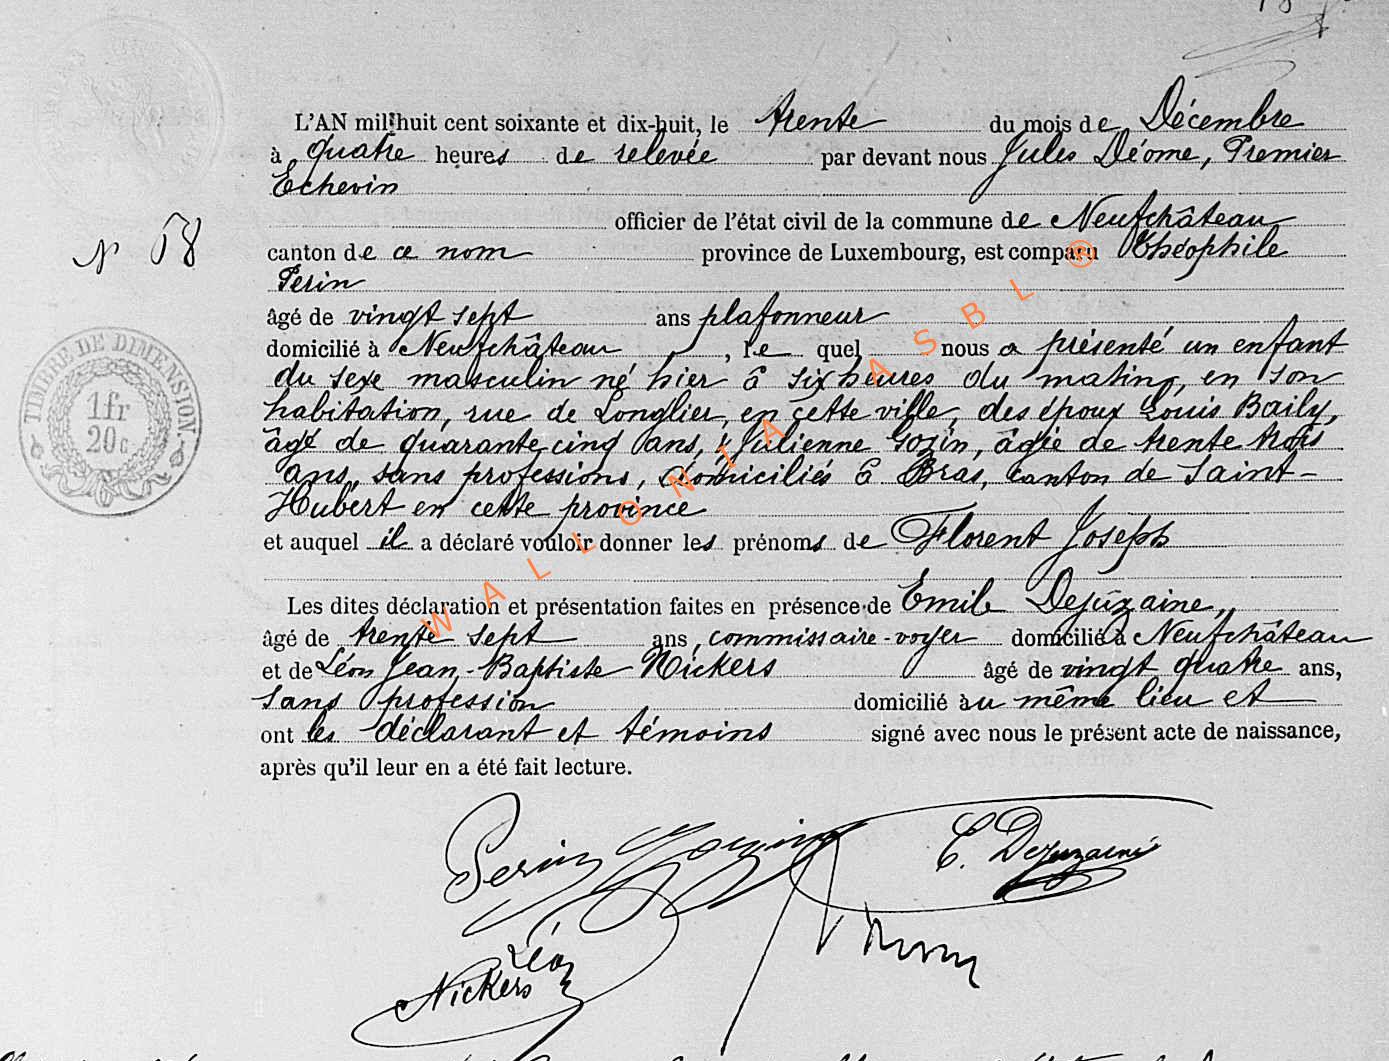 L'AN mil huit cent soixante et dix-huit, le trente du mois de Décembre
à quatre heures de relevée par devant nous Jules Déome, Premier
Echevin
officier de l'état civil de la commune de Neufchâteau
N° 58
canton de ce nom province de Luxembourg, est comparu Théophile
Perin
âgé de vingt sept ans plafonneur
domicilié à Neufchâteau, le quel nous a présenté un enfant
du sexe masculin né hier à six heures du matin, en son
habitation, rue de Longlier, en cette ville, des époux Louis Baily,
âgé de quarante cinq ans, & Julienne Gozin, âgée de trente trois
ans, sans professions, domiciliés à Bras, canton de Saint-
Hubert en cette province
et auquel il a déclaré vouloir donner les prénoms de Florent Joseph
Les dites déclaration et présentation faites en présence de Emile Dejuzaine,
âgé de trente sept ans, commissaire-voyer domicilié à Neufchâteau
et de Léon Jean-Baptiste Nickers âgé de vingt quatre ans,
sans profession domicilié au même lieu et
ont les déclarant et témoins signé avec nous le présent acte de naissance,
après qu'il leur en a été fait lecture.
TIMBRE DE DIMENSION.
1 fr
20 c
WALLONIA ASBL ®
Perin
E. Dejuzaine
Léon
Nickers